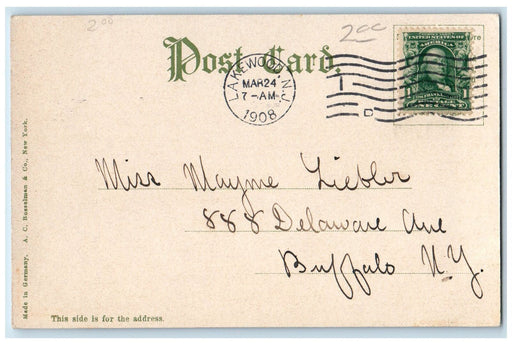 200
200
Post Card.
UNITED STATES OF AMERICA
LAKEWOOD, N.J.
MAR 24
7-AM
1908
D
Miss Mayme Liebler
888 Delaware Ave
Buffalo N.Y.
Made in Germany. A. C. Bosselman & Co., New York.
This side is for the address.